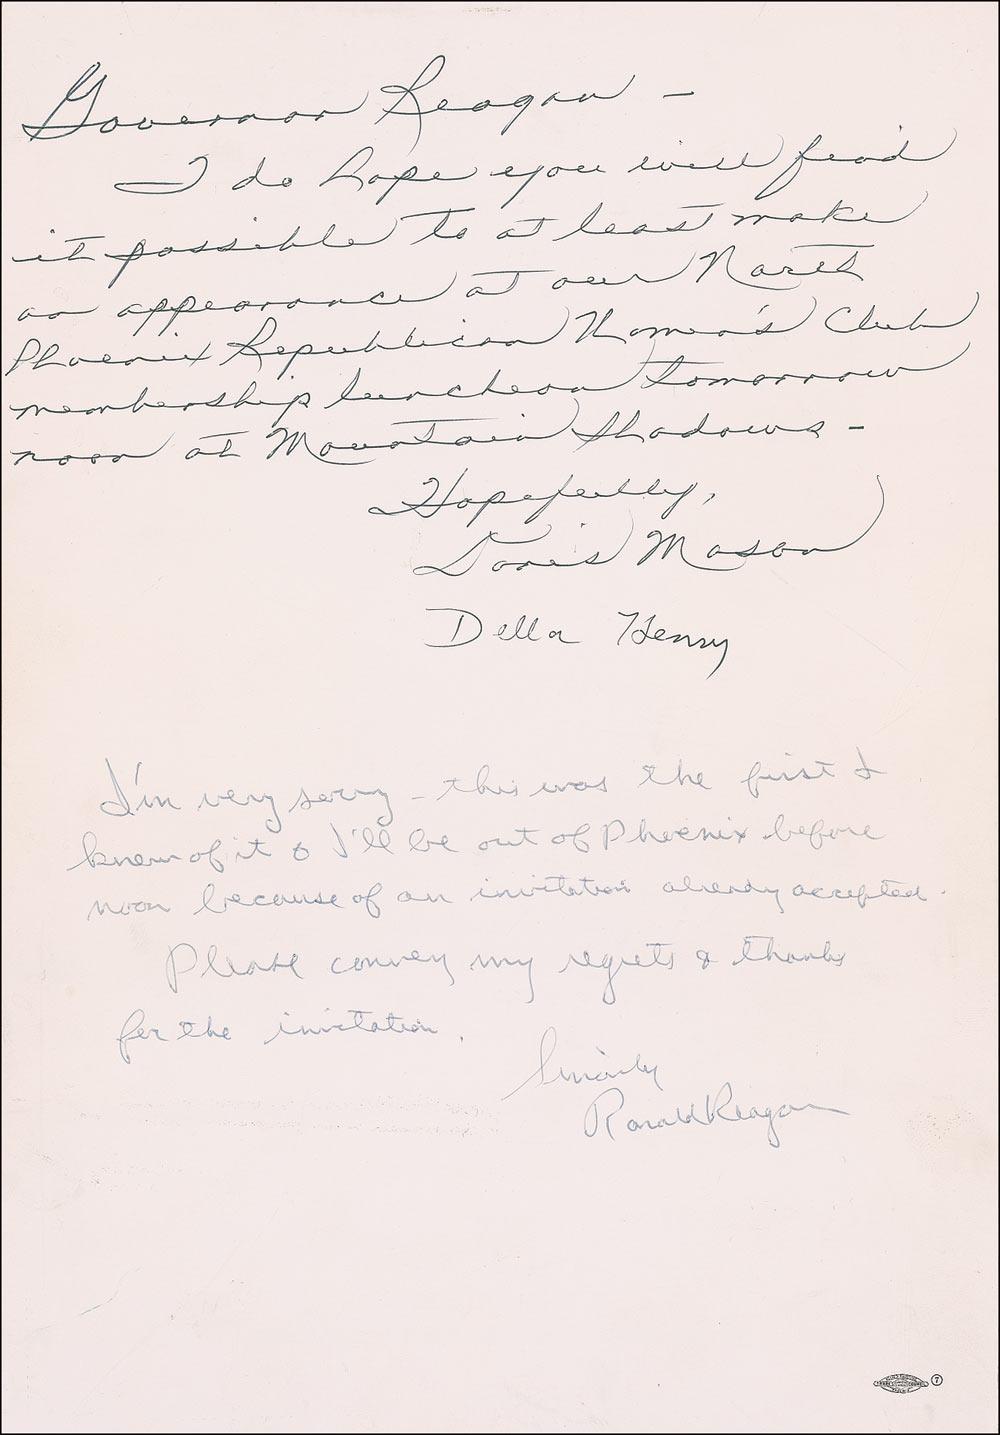 Governor Reagan —
I do hope you will find
it possible to at least make
an appearance at our North
Phoenix Republican Women's Club
membership luncheon tomorrow
noon at Mountain Shadows —
Hopefully,
Doris Mason
Della Henry
I'm very sorry – this was the first I
knew of it & I'll be out of Phoenix before
noon because of an invitation already accepted.
Please convey my regrets & thanks
for the invitation.
Sincerely
Ronald Reagan
7